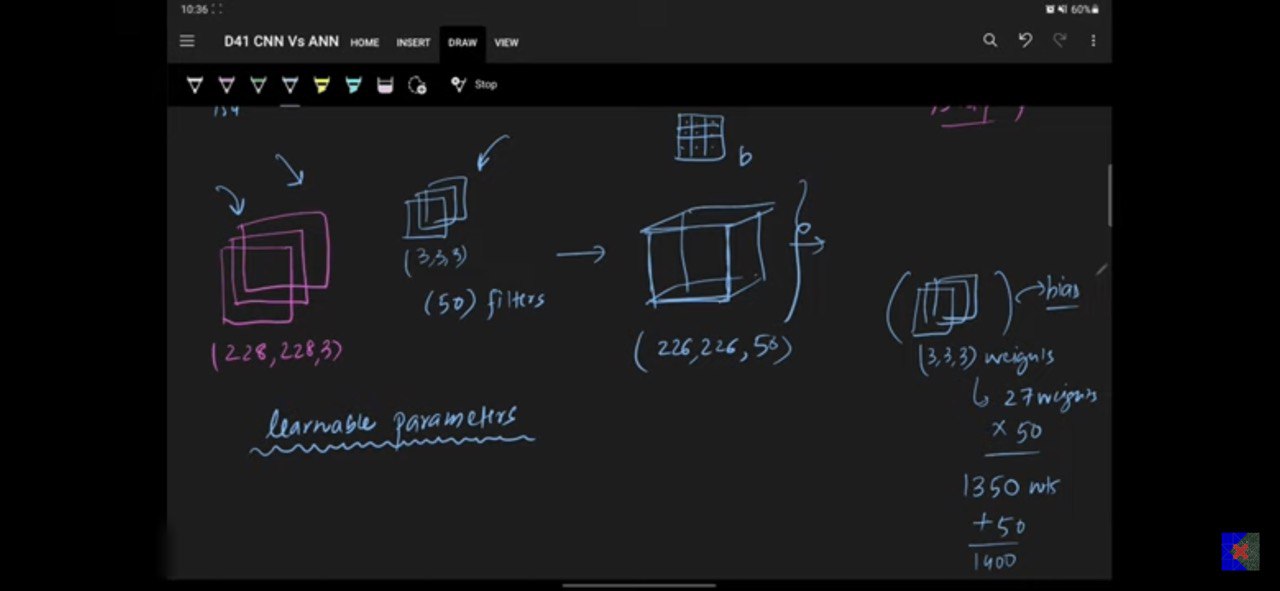 10:36
60%
D41 CNN Vs ANN HOME INSERT DRAW VIEW
Stop
b
(3,3,3)
(50) filters
(228,228,3)
(226,226,50)
bias
(3,3,3) weights
27 weights
x 50
1350 wts
+50
1400
learnable parameters